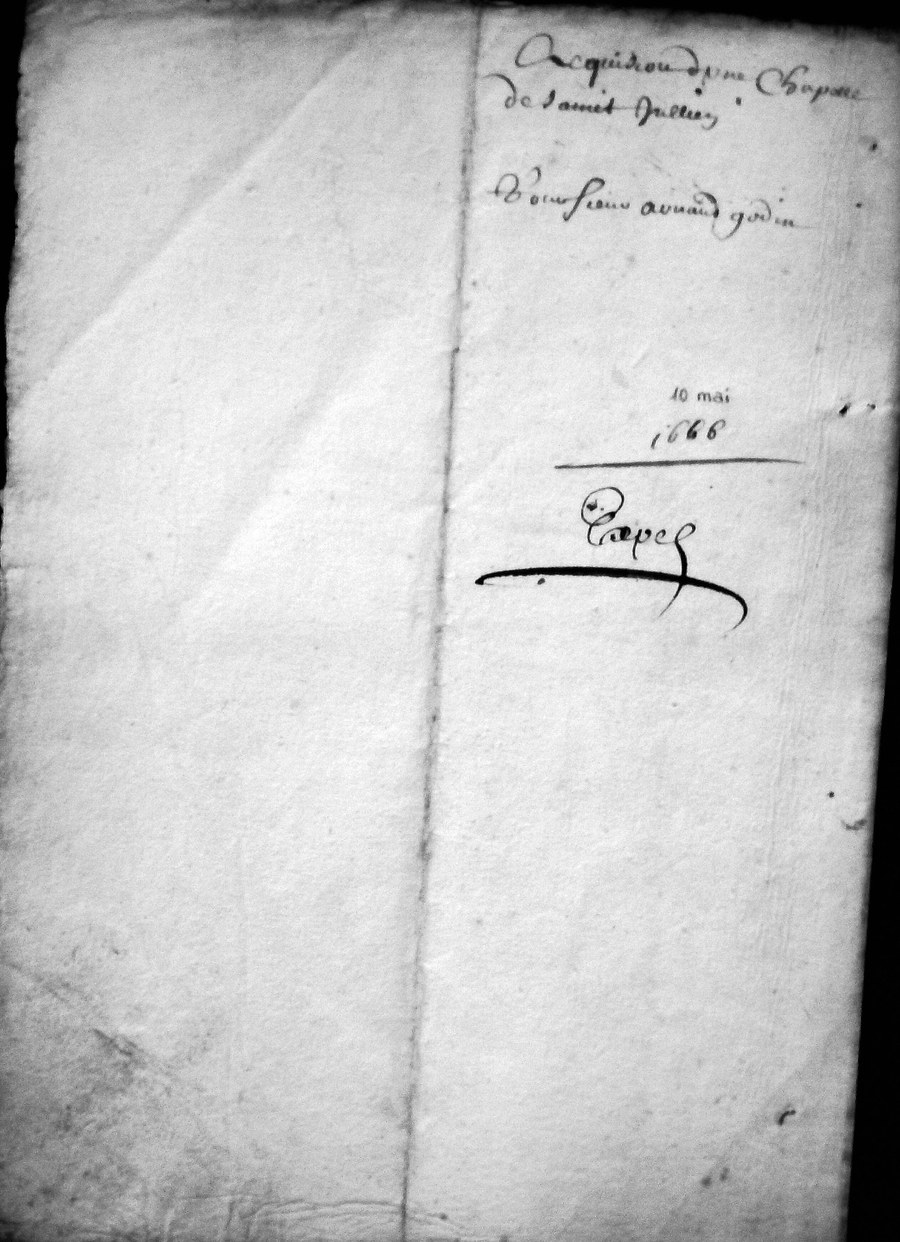 Acquision dune Chapelle
de Sainct Jullien
Pour sieur arnaud godin
10 mai
1666